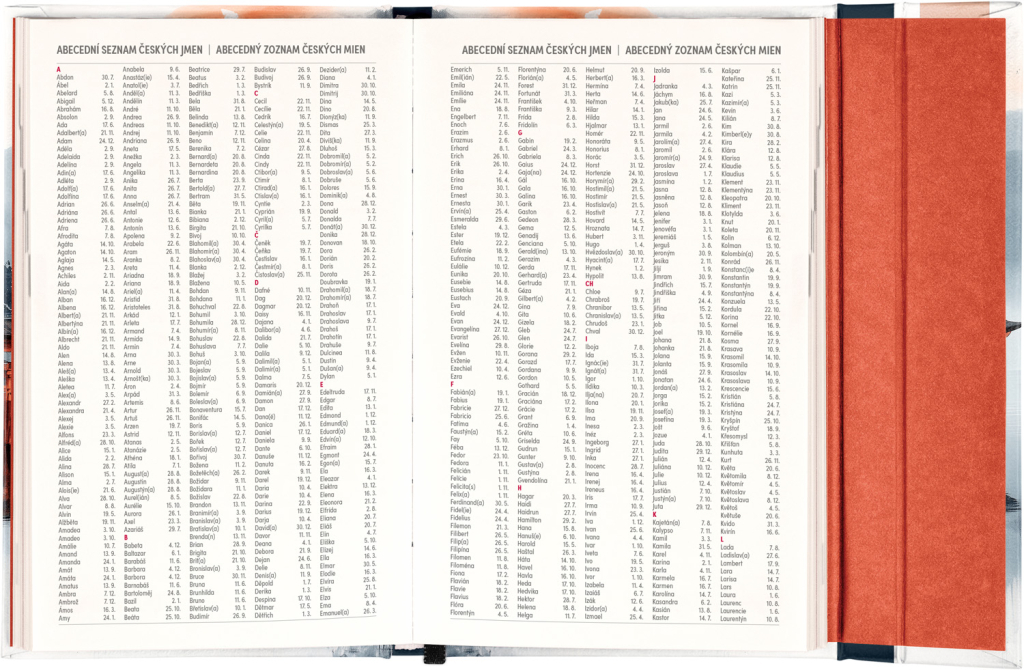 ABECEDNÍ SEZNAM ČESKÝCH JMEN | ABECEDNÝ ZOZNAM ČESKÝCH MIEN
A
Abdon 30. 7.
Ábel 2. 1.
Abelard 5. 8.
Abigail 5. 12.
Abrahám 16. 8.
Absolon 2. 9.
Ada 17. 6.
Adalbert(a) 21. 11.
Adam 24. 12.
Adéla 2. 9.
Adelaida 2. 9.
Adelina 2. 9.
Adin(a) 17. 6.
Adléta 2. 9.
Adolf(a) 17. 6.
Adolfína 17. 6.
Adrian 26. 6.
Adriána 26. 6.
Adriena 26. 6.
Afra 7. 8.
Afrodita 7. 8.
Agáta 14. 10.
Agaton 14. 10.
Aglaja 14. 5.
Agnes 2. 3.
Achiles 2. 11.
Aida 2. 2.
Alan(a) 14. 8.
Alban 16. 12.
Alberta 16. 12.
Albert(a) 21. 11.
Albertýna 21. 11.
Albín(a) 16. 12.
Albrecht 21. 11.
Aldo 21. 11.
Alen 14. 8.
Alena 13. 8.
Aleš(a) 13. 4.
Aleška 13. 4.
Aletea 11. 7.
Alex(a) 3. 5.
Alexandr 27. 2.
Alexandra 21. 4.
Alexej 3. 5.
Alexie 3. 5.
Alfons 23. 3.
Alfréd(a) 28. 10.
Alice 15. 1.
Alida 2. 2.
Alina 28. 7.
Alison 15. 1.
Alma 2. 7.
Alois(ie) 21. 6.
Alva 28. 10.
Alvar 8. 8.
Alvin 19. 5.
Alžběta 19. 11.
Amadea 3. 10.
Amadeo 3. 10.
Amálie 10. 7.
Amand 13. 9.
Amanda 24. 1.
Amát 13. 9.
Amáta 24. 1.
Amatus 13. 9.
Ambra 7. 12.
Ambrož 7. 12.
Ámos 16. 3.
Amy 24. 1.
Anabela 9. 6.
Anastáz(ie) 15. 4.
Anatol(ie) 3. 7.
Anděl(a) 11. 3.
Andělín 11. 3.
André 11. 10.
Andrea 26. 9.
Andreas 11. 10.
Andrej 11. 10.
Andriana 26. 9.
Aneta 17. 5.
Anežka 2. 3.
Angela 11. 3.
Angelika 11. 3.
Anika 26. 7.
Anita 26. 7.
Anna 26. 7.
Anselm(a) 21. 4.
Antal 13. 6.
Antonie 12. 6.
Antonín 13. 6.
Apolena 9. 2.
Arabela 22. 6.
Aram 26. 11.
Aranka 8. 2.
Areta 11. 4.
Ariadna 18. 9.
Ariana 18. 9.
Ariel(a) 11. 4.
Aristid 31. 8.
Aristoteles 31. 8.
Arkád 12. 1.
Arleta 17. 7.
Armand 7. 4.
Armida 14. 9.
Armin 7. 4.
Arna 30. 3.
Arne 30. 3.
Arnold 30. 3.
Arnošt(ka) 30. 3.
Áron 2. 4.
Arpád 31. 3.
Artemis 8. 6.
Artur 26. 11.
Artuš 26. 11.
Arzen 19. 7.
Astrid 12. 11.
Atanas 2. 5.
Atanázie 2. 5.
Athéna 18. 1.
Atila 7. 1.
August(a) 28. 8.
Augustin 28. 8.
Augustýn(a) 28. 8.
Aurel(ián) 8. 5.
Aurélie 15. 10.
Aurora 26. 1.
Axel 23. 3.
Azariáš 29. 7.
B
Babeta 4. 12.
Baltazar 6. 1.
Barabáš 11. 6.
Barbara 4. 12.
Barbora 4. 12.
Barnabáš 11. 6.
Bartoloměj 24. 8.
Bazil 2. 1.
Beata 25. 10.
Beáta 25. 10.
Beatrice 29. 7.
Beatus 3. 2.
Bedřich 1. 3.
Bedřiška 1. 3.
Bela 31. 8.
Béla 21. 1.
Belinda 13. 8.
Benedikt(a) 12. 11.
Benjamin 7. 12.
Beno 12. 11.
Berenika 7. 2.
Bernard(a) 20. 8.
Bernardeta 20. 8.
Bernardina 20. 8.
Berta 23. 9.
Bertold(a) 27. 7.
Bertram 31. 5.
Běta 19. 11.
Bianka 21. 1.
Bibiana 2. 12.
Birgita 21. 10.
Bivoj 10. 10.
Blahomil(a) 30. 4.
Blahomír(a) 30. 4.
Blahoslav(a) 30. 4.
Blanka 2. 12.
Blažej 3. 2.
Blažena 10. 5.
Bohdan 9. 11.
Bohdana 11. 1.
Bohuchval 22. 8.
Bohumil 3. 10.
Bohumila 28. 12.
Bohumír(a) 8. 11.
Bohuslav 22. 8.
Bohuslava 7. 7.
Bohuš 3. 10.
Bojan(a) 5. 9.
Bojeslav 5. 9.
Bojislav(a) 5. 9.
Bojmír 5. 9.
Bolemír 6. 9.
Boleslav(a) 6. 9.
Bonaventura 15. 7.
Bonifác 14. 5.
Boris 5. 9.
Borislav(a) 5. 9.
Bořek 12. 7.
Bořislav(a) 12. 7.
Bořivoj 30. 7.
Božena 11. 2.
Božetěch(a) 26. 2.
Božidar 9. 11.
Božidara 11. 1.
Božislav 22. 8.
Brandon 13. 11.
Branimír(a) 3. 9.
Branislav(a) 3. 9.
Bratislav(a) 10. 1.
Brenda(n) 13. 11.
Brian 28. 9.
Brigita 21. 10.
Brit(a) 21. 10.
Bronislav(a) 3. 9.
Bruce 30. 11.
Bruna 11. 6.
Brunhilda 11. 6.
Bruno 11. 6.
Břetislav(a) 10. 1.
Budimír 26. 9.
Budislav 26. 9.
Budivoj 26. 9.
Bystrík 11. 9.
C
Cecil 22. 11.
Cecílie 22. 11.
Cedrik 16. 7.
Celestýn(a) 19. 5.
Celie 22. 11.
Celina 20. 4.
Cézar 27. 8.
Cinda 22. 11.
Cindy 22. 11.
Ctibor(a) 9. 5.
Ctimír 8. 1.
Ctirad(a) 16. 1.
Ctislav(a) 16. 1.
Cynthie 2. 3.
Cyprián 19. 9.
Cyril(a) 5. 7.
Cyrilka 5. 7.
Č
Čeněk 19. 7.
Čeňka 19. 7.
Čestislav 16. 1.
Čestmír(a) 8. 1.
Čstoslav(a) 25. 11.
D
Dafné 10. 11.
Dag 20. 12.
Dagmar 20. 12.
Daisy 16. 11.
Dajana 4. 1.
Dalibor(a) 4. 6.
Dalida 21. 7.
Dalie 5. 10.
Dalila 9. 12.
Dalimil(a) 5. 1.
Dalimír(a) 5. 1.
Dalma 7. 5.
Damaris 20. 12.
Damián(a) 27. 9.
Damon 27. 9.
Dan 17. 12.
Dana(é) 11. 12.
Danica 26. 1.
Daniel 17. 12.
Daniela 9. 9.
Dante 6. 10.
Danuše 11. 12.
Danuta 16. 2.
Darek 9. 11.
Darel 19. 12.
Daria 10. 4.
Darie 10. 4.
Darina 22. 9.
Darius 19. 12.
Darja 10. 4.
David(a) 30. 12.
Davor 11. 11.
Deana 4. 1.
Debora 21. 9.
Dejan 24. 6.
Delie 8. 11.
Denis(a) 11. 9.
Děpold 1. 7.
Derika 1. 3.
Despina 17. 10.
Dětmar 17. 5.
Dětřich 1. 3.
Dezider(a) 11. 2.
Diana 4. 1.
Dimitra 30. 10.
Dimitrij 30. 10.
Dina 14. 5.
Dino 20. 8.
Dionýz(ka) 11. 9.
Dismas 25. 3.
Dita 27. 3.
Diviš(ka) 11. 9.
Dluhoš 15. 3.
Dobromil(a) 5. 2.
Dobromír(a) 5. 2.
Dobroslav(a) 5. 6.
Dobruše 5. 6.
Dolores 15. 9.
Dominik(a) 4. 8.
Dona 28. 12.
Donald 3. 2.
Donalda 7. 7.
Donát(a) 30. 12.
Donika 28. 12.
Donovan 18. 10.
Dora 26. 2.
Dorián 20. 2.
Doris 26. 2.
Dorota 26. 2.
Doubravka 19. 1.
Drahomil(a) 18. 7.
Drahomír(a) 18. 7.
Drahoň 17. 1.
Drahoslav 17. 1.
Drahoslava 9. 7.
Drahoš 17. 1.
Drahotín 17. 1.
Drahuše 9. 7.
Dulcinea 11. 6.
Dustin 9. 4.
Dušan(a) 9. 4.
Dylan 5. 1.
E
Edeltruda 17. 11.
Edgar 8. 7.
Edita 13. 1.
Edmond 1. 12.
Edmund(a) 1. 12.
Eduard(a) 18. 3.
Edvín(a) 12. 10.
Efraim 28. 1.
Egmont 24. 4.
Egon(a) 15. 7.
Ela 16. 3.
Eleazar 4. 1.
Elektra 13. 12.
Elena 16. 3.
Eleonora 21. 2.
Elfrída 2. 8.
Eliana 20. 7.
Eliáš 20. 7.
Elin 4. 7.
Eliška 5. 10.
Elizej 14. 6.
Elia 16. 3.
Elmar 20. 5.
Elodie 16. 3.
Elvíra 25. 8.
Elvis 21. 1.
Elza 5. 10.
Ema 8. 4.
Emanuel(a) 26. 3.
ABECEDNÍ SEZNAM ČESKÝCH JMEN | ABECEDNÝ ZOZNAM ČESKÝCH MIEN
Emerich 5. 11.
Emil(ián) 22. 5.
Emila 24. 11.
Emiliána 24. 11.
Emílie 24. 11.
Ena 18. 8.
Engelbert 7. 11.
Enoch 7. 6.
Erazim 2. 6.
Erazmus 2. 6.
Erhard 8. 1.
Erich 26. 10.
Erik 26. 10.
Erika 2. 4.
Erina 16. 4.
Erna 30. 1.
Ernest 30. 3.
Ernesta 30. 1.
Ervín(a) 25. 4.
Esmeralda 29. 6.
Estela 4. 3.
Ester 19. 12.
Etela 22. 2.
Eufémie 18. 9.
Eufrozina 11. 2.
Eulálie 10. 12.
Eunika 20. 10.
Eusebie 14. 8.
Eusebius 14. 8.
Eustach 20. 9.
Eva 24. 12.
Evald 4. 10.
Evan 24. 12.
Evangelína 27. 12.
Evarist 26. 10.
Evelína 29. 8.
Evžen 10. 11.
Evženie 22. 4.
Ezechiel 10. 4.
Ezra 12. 6.
F
Fabián(a) 19. 1.
Fabius 19. 1.
Fabricie 27. 12.
Fabricio 25. 6.
Fatima 4. 6.
Faustýn(a) 15. 2.
Fay 5. 10.
Féba 13. 12.
Fedor 23. 10.
Fedora 11. 1.
Felicián 1. 11.
Felície 1. 11.
Felicita(s) 1. 11.
Felix(a) 1. 11.
Ferdinand(a) 30. 5.
Fidel(ie) 24. 4.
Fidelius 24. 4.
Filemon 21. 3.
Filibert 26. 5.
Filip(a) 26. 5.
Filipína 26. 5.
Filomen 11. 8.
Filoména 11. 8.
Fiona 17. 2.
Flavián 18. 2.
Flavie 18. 2.
Flavius 18. 2.
Flóra 20. 6.
Florentýn 4. 5.
Florentýna 20. 6.
Florián(a) 4. 5.
Forest 31. 12.
Fortunát 31. 3.
František 4. 10.
Františka 9. 3.
Frída 2. 8.
Fridolín 6. 3.
G
Gabin 19. 2.
Gabriel 24. 3.
Gabriela 8. 3.
Gaius 24. 12.
Gaja(na) 24. 12.
Gál 16. 10.
Gala 16. 10.
Galina 16. 10.
Garik 23. 4.
Gaston 6. 2.
Gedeon 28. 3.
Gema 12. 5.
Genadij 13. 6.
Genciana 5. 10.
Gerald(ina) 13. 10.
Gerazim 4. 3.
Gerda 17. 11.
Gerhard(a) 23. 4.
Gertruda 17. 11.
Géza 21. 1.
Gilbert(a) 4. 2.
Gina 7. 9.
Gita 10. 6.
Gizela 18. 2.
Gleb 24. 7.
Glen 24. 7.
Glorie 12. 2.
Gorana 29. 2.
Gorazd 17. 7.
Gordana 9. 9.
Gordon 10. 5.
Gothard 5. 5.
Gracián 18. 12.
Graciána 17. 2.
Grácie 17. 2.
Grant 6. 9.
Gražina 1. 4.
Gréta 10. 6.
Griselda 24. 9.
Gudrun 15. 1.
Gunter 9. 10.
Gustav(a) 2. 8.
Gustýna 2. 8.
Gvendolína 21. 1.
H
Hagar 20. 3.
Haidi 27. 7.
Haidrun 27. 7.
Hamilton 29. 2.
Hana 15. 8.
Hanuš(e) 6. 10.
Harold 15. 5.
Haštal 26. 3.
Háta 14. 10.
Havel 16. 10.
Havla 16. 10.
Heda 17. 10.
Hedvika 17. 10.
Hektor 28. 7.
Helena 18. 8.
Helga 11. 7.
Helmut 20. 9.
Herbert(a) 16. 3.
Hermína 7. 4.
Herta 14. 6.
Heřman 7. 4.
Hilar 14. 1.
Hilda 15. 3.
Hjalmar 13. 1.
Homér 22. 11.
Honoráta 9. 5.
Honorius 8. 1.
Horác 3. 5.
Horst 31. 12.
Hortenzie 24. 10.
Horymír(a) 29. 2.
Hostimil(a) 21. 5.
Hostimír 21. 5.
Hostislav(a) 21. 5.
Hostivít 7. 7.
Hovard 14. 5.
Hroznata 14. 7.
Hubert 3. 11.
Hugo 1. 4.
Hvězdoslav(a) 30. 10.
Hyacint(a) 17. 7.
Hynek 1. 2.
Hypolit 13. 8.
CH
Chloe 9. 7.
Chrabroš 19. 7.
Chranibor 13. 5.
Chranislav(a) 13. 5.
Chrudoš 23. 1.
Chval 30. 12.
I
Iboja 7. 8.
Ida 15. 3.
Ignác(ie) 31. 7.
Ignát(a) 31. 7.
Igor 1. 10.
Ildika 10. 3.
Ilja(na) 20. 7.
Ilona 20. 1.
Ilsa 19. 11.
Ima 20. 9.
Inesa 2. 3.
Inéz 2. 3.
Ingeborg 27. 1.
Ingrid 27. 1.
Inka 27. 1.
Inocenc 28. 7.
Irena 16. 4.
Irenej 16. 4.
Ireneus 16. 4.
Iris 17. 7.
Irma 10. 9.
Irvin 25. 4.
Iva 1. 12.
Ivan 25. 6.
Ivana 4. 4.
Ivar 1. 10.
Iveta 7. 6.
Ivo 19. 5.
Ivona 23. 3.
Ivor 1. 10.
Izabela 11. 4.
Izaiáš 6. 7.
Izák 12. 6.
Izidor(a) 4. 4.
Izmael 25. 4.
Izolda 15. 6.
J
Jadranka 4. 3.
Jáchym 16. 8.
Jakub(ka) 25. 7.
Jan 24. 6.
Jana 24. 5.
Jarmil 2. 6.
Jarmila 4. 2.
Jarolím(a) 27. 4.
Jaromil 2. 6.
Jaromír(a) 24. 9.
Jaroslav 27. 4.
Jaroslava 1. 7.
Jasmína 1. 2.
Jasna 12. 8.
Jasněna 12. 8.
Jasoň 12. 8.
Jelena 18. 8.
Jenifer 3. 1.
Jenovéfa 3. 1.
Jeremiáš 1. 5.
Jerguš 3. 8.
Jeroným 30. 9.
Jesika 2. 11.
Jiljí 1. 9.
Jimram 30. 9.
Jindřich 15. 7.
Jindřiška 4. 9.
Jiří 24. 4.
Jiřina 15. 2.
Jitka 5. 12.
Job 10. 5.
Joel 19. 10.
Johana 21. 8.
Johanka 21. 8.
Jolana 15. 9.
Jolanta 15. 9.
Jonáš 27. 9.
Jonatan 24. 6.
Jordan(a) 13. 2.
Jorga 15. 2.
Jorika 15. 2.
Josef(a) 19. 3.
Josefína 19. 3.
Jošt 9. 6.
Jozue 4. 1.
Juda 28. 10.
Judita 29. 12.
Julián 12. 4.
Juliána 10. 12.
Julie 10. 12.
Julius 12. 4.
Justián 7. 10.
Justýn(a) 7. 10.
Juta 29. 12.
K
Kajetán(a) 7. 8.
Kalypso 7. 11.
Kamil 3. 3.
Kamila 31. 5.
Karel 4. 11.
Karina 2. 1.
Karla 4. 11.
Karmela 16. 7.
Karmen 16. 7.
Karolína 14. 7.
Kasandra 6. 2.
Kasián 13. 8.
Kastor 14. 7.
Kašpar 6. 1.
Kateřina 25. 11.
Katrin 25. 11.
Kazi 5. 3.
Kazimír(a) 5. 3.
Kevin 3. 6.
Kilián 8. 7.
Kim 30. 8.
Kimberl(e)y 30. 8.
Kira 28. 2.
Klára 12. 8.
Klarisa 12. 8.
Klaudie 5. 5.
Klaudius 5. 5.
Klement 23. 11.
Klementýna 23. 11.
Kleopatra 20. 10.
Kliment 23. 11.
Klotylda 3. 6.
Knut 20. 1.
Koleta 20. 11.
Kolín 6. 12.
Kolman 13. 10.
Kolombín(a) 20. 5.
Konrád 26. 11.
Konstanc(i)e 8. 4.
Konstantin 19. 9.
Konstantýn 19. 9.
Konstantýna 8. 4.
Konzuela 13. 5.
Kordula 22. 10.
Korina 22. 10.
Kornel 16. 9.
Kornélie 16. 9.
Kosma 27. 9.
Krasava 10. 9.
Krasomil 14. 10.
Krasomila 10. 9.
Krasoslav 14. 10.
Krasoslava 10. 9.
Krescencie 15. 6.
Kristián 5. 8.
Kristina 24. 7.
Kristýna 24. 7.
Kryšpín 25. 10.
Kryštof 18. 9.
Křesomysl 12. 3.
Křišťan 5. 8.
Kunhuta 3. 3.
Kurt 26. 11.
Květa 20. 6.
Květomila 8. 12.
Květomír 4. 5.
Květoslav 4. 5.
Květoslava 8. 12.
Květoš 4. 5.
Květuše 20. 6.
Kvido 31. 3.
Kvirin 16. 6.
L
Lada 7. 8.
Ladislav(a) 27. 6.
Lambert 17. 9.
Lara 14. 7.
Larisa 14. 7.
Lars 10. 8.
Laura 1. 6.
Laurenc 10. 8.
Laurencie 1. 6.
Laurentýn 10. 8.